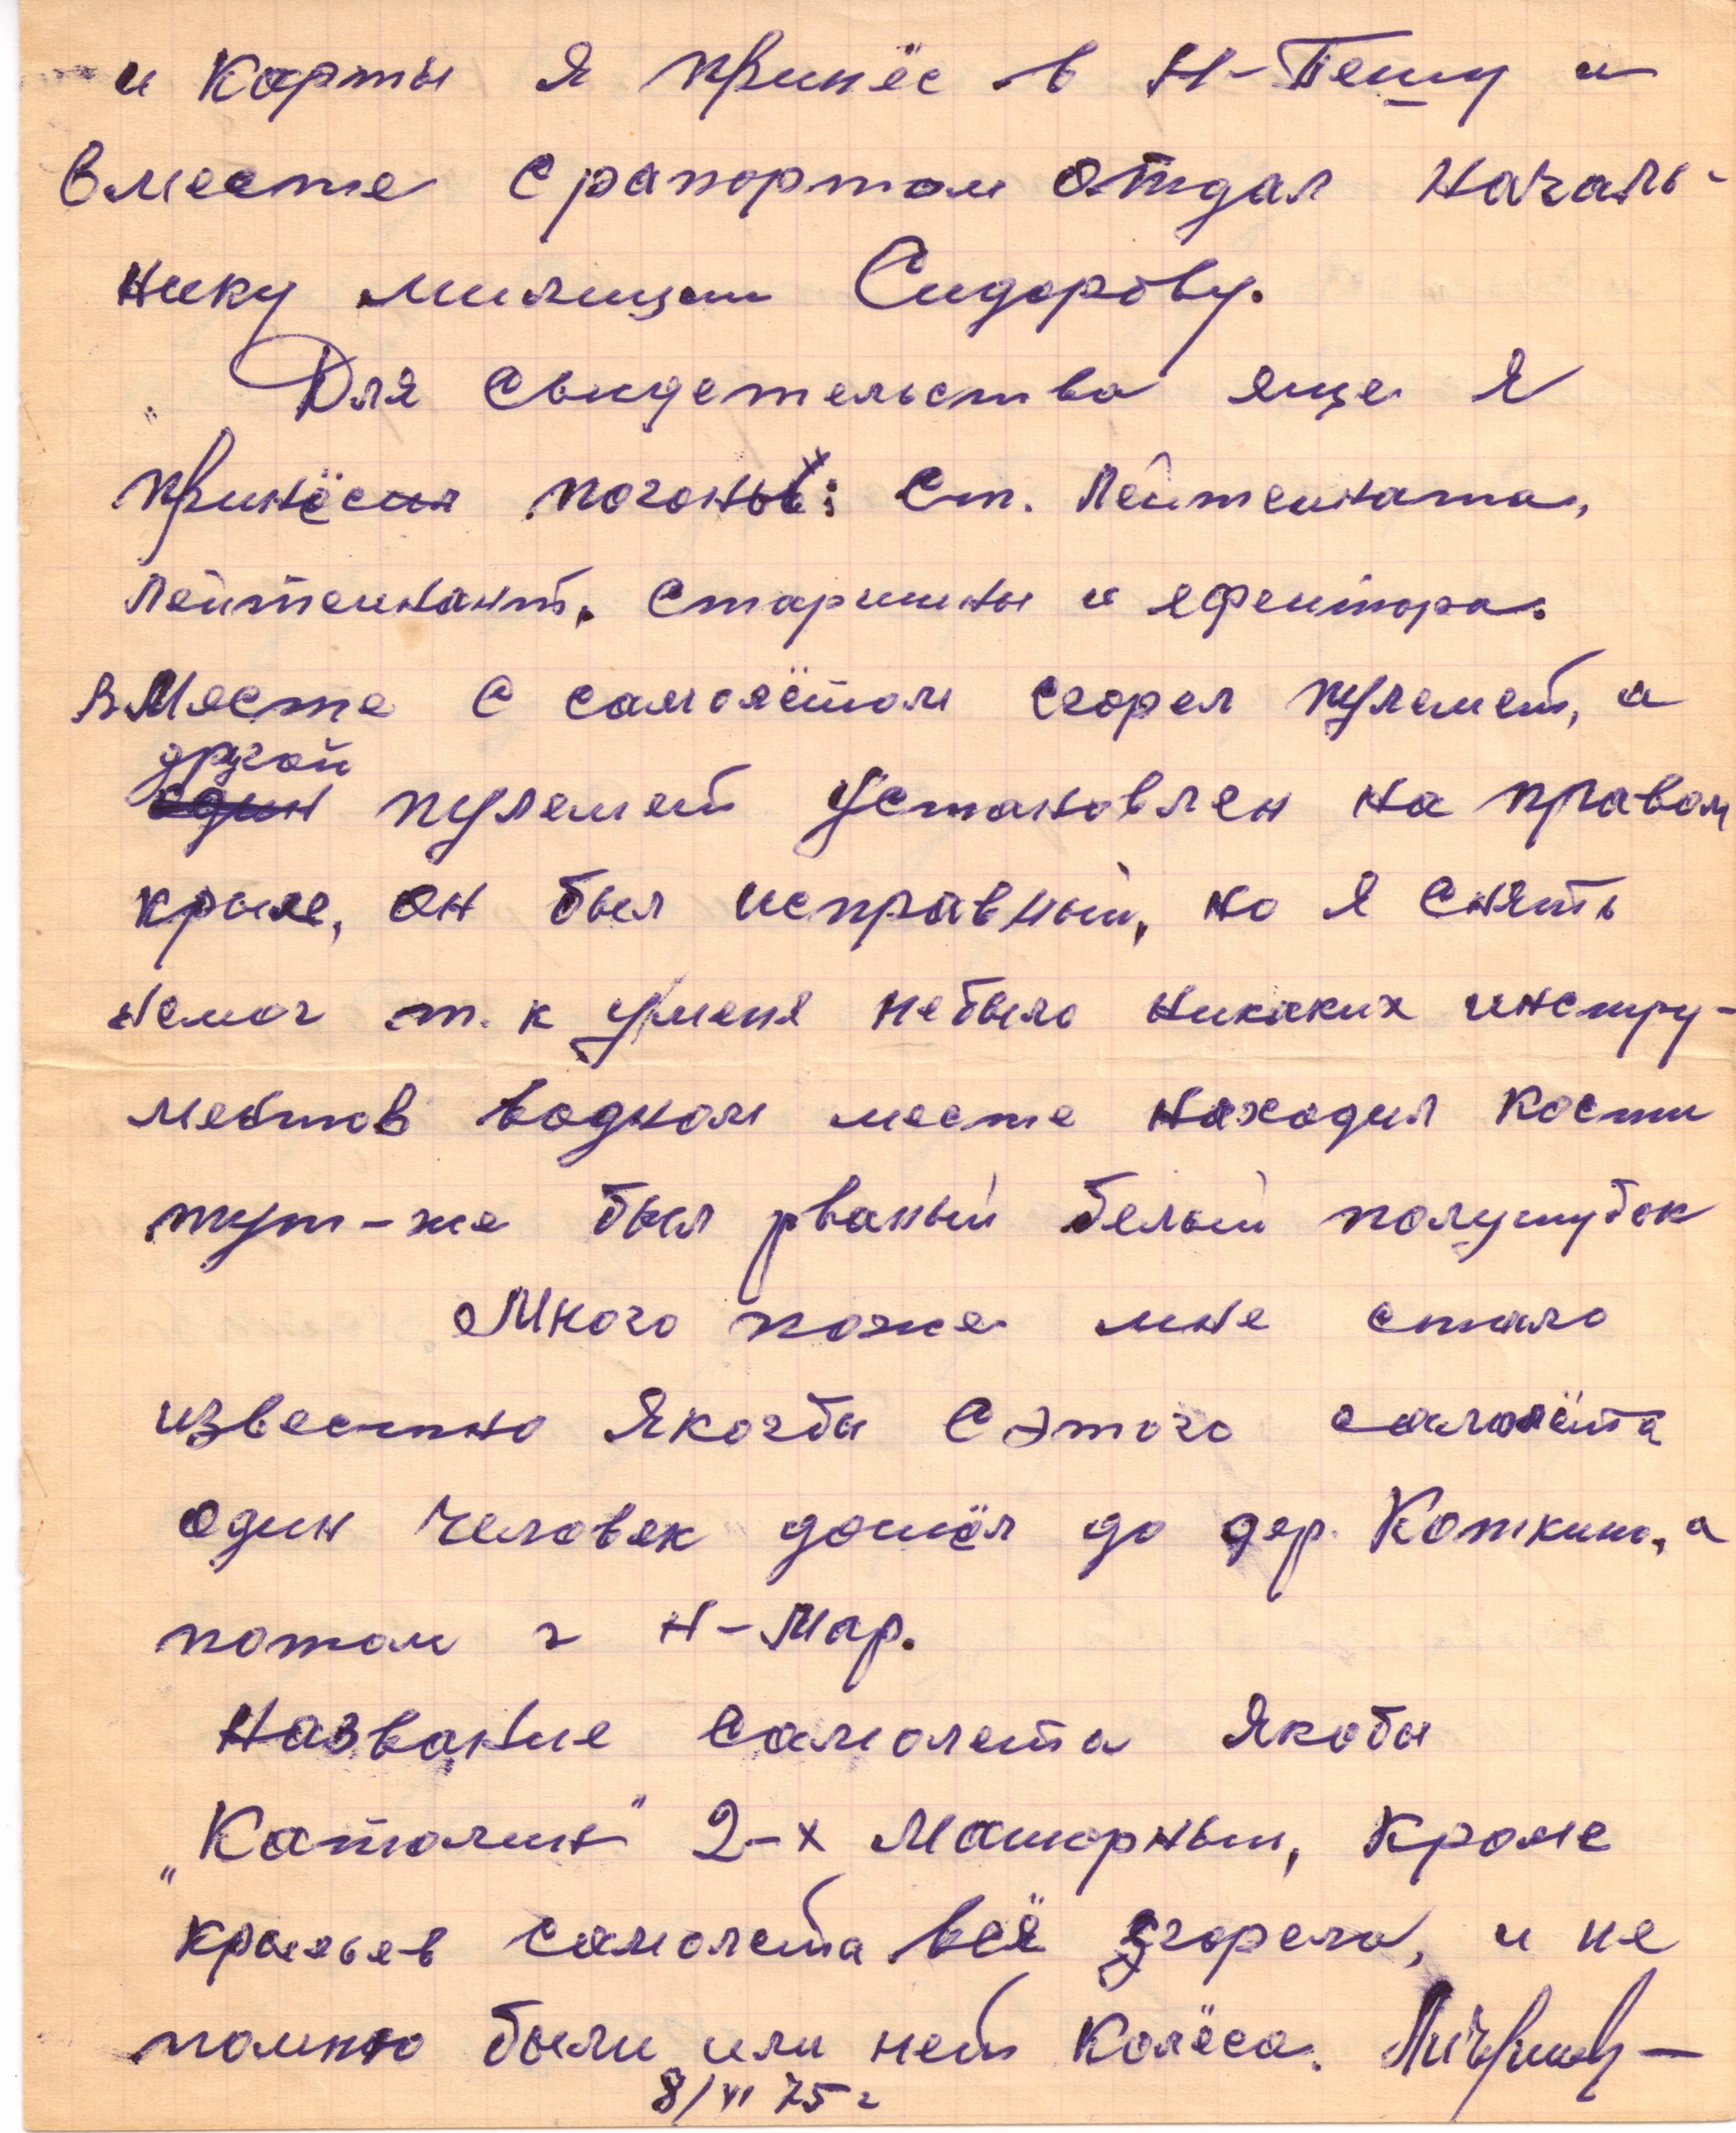 и карты я принёс в Н-Пешу и
вместе с рапортом отдал началь-
нику милиции Сидорову.
Для свидетельства еще я
принёс погоны: Ст. Лейтенната,
Лейтеннант, старшины и ефентора.
вместе с самолётом сгорел пулемет, а
другой
один пулемет установлен на правом
крыле, он был исправный, но я снять
немог т. к уменя небыло никаких инстру-
ментов водном месте находил кости
тут-же был рваный белый полушубок
Много позже мне стало
известно якогбы с этого самолёта
один человек дошёл до дер. Коткино, а
потом г Н-Мар.
Название самолета якобы
"Католин" 2-х маторный, кроме
крыльев самолета всё сгорело, и не
помню были или нет колёса.
8/VI 75 г